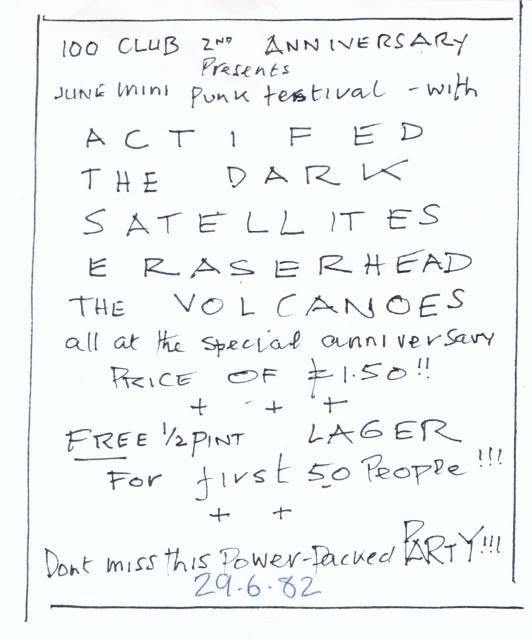 100 CLUB 2ND ANNIVERSARY
Presents
JUNE mini Punk festival - with
ACTIFED
THE DARK
SATELLITES
ERASERHEAD
THE VOLCANOES
all at the special anniversary
PRICE OF £1.50!!
+ - + +
FREE 1/2 PINT LAGER
FOR first 50 People!!!
+ +
Dont miss this Power-Packed PARTY!!!
29.6.82